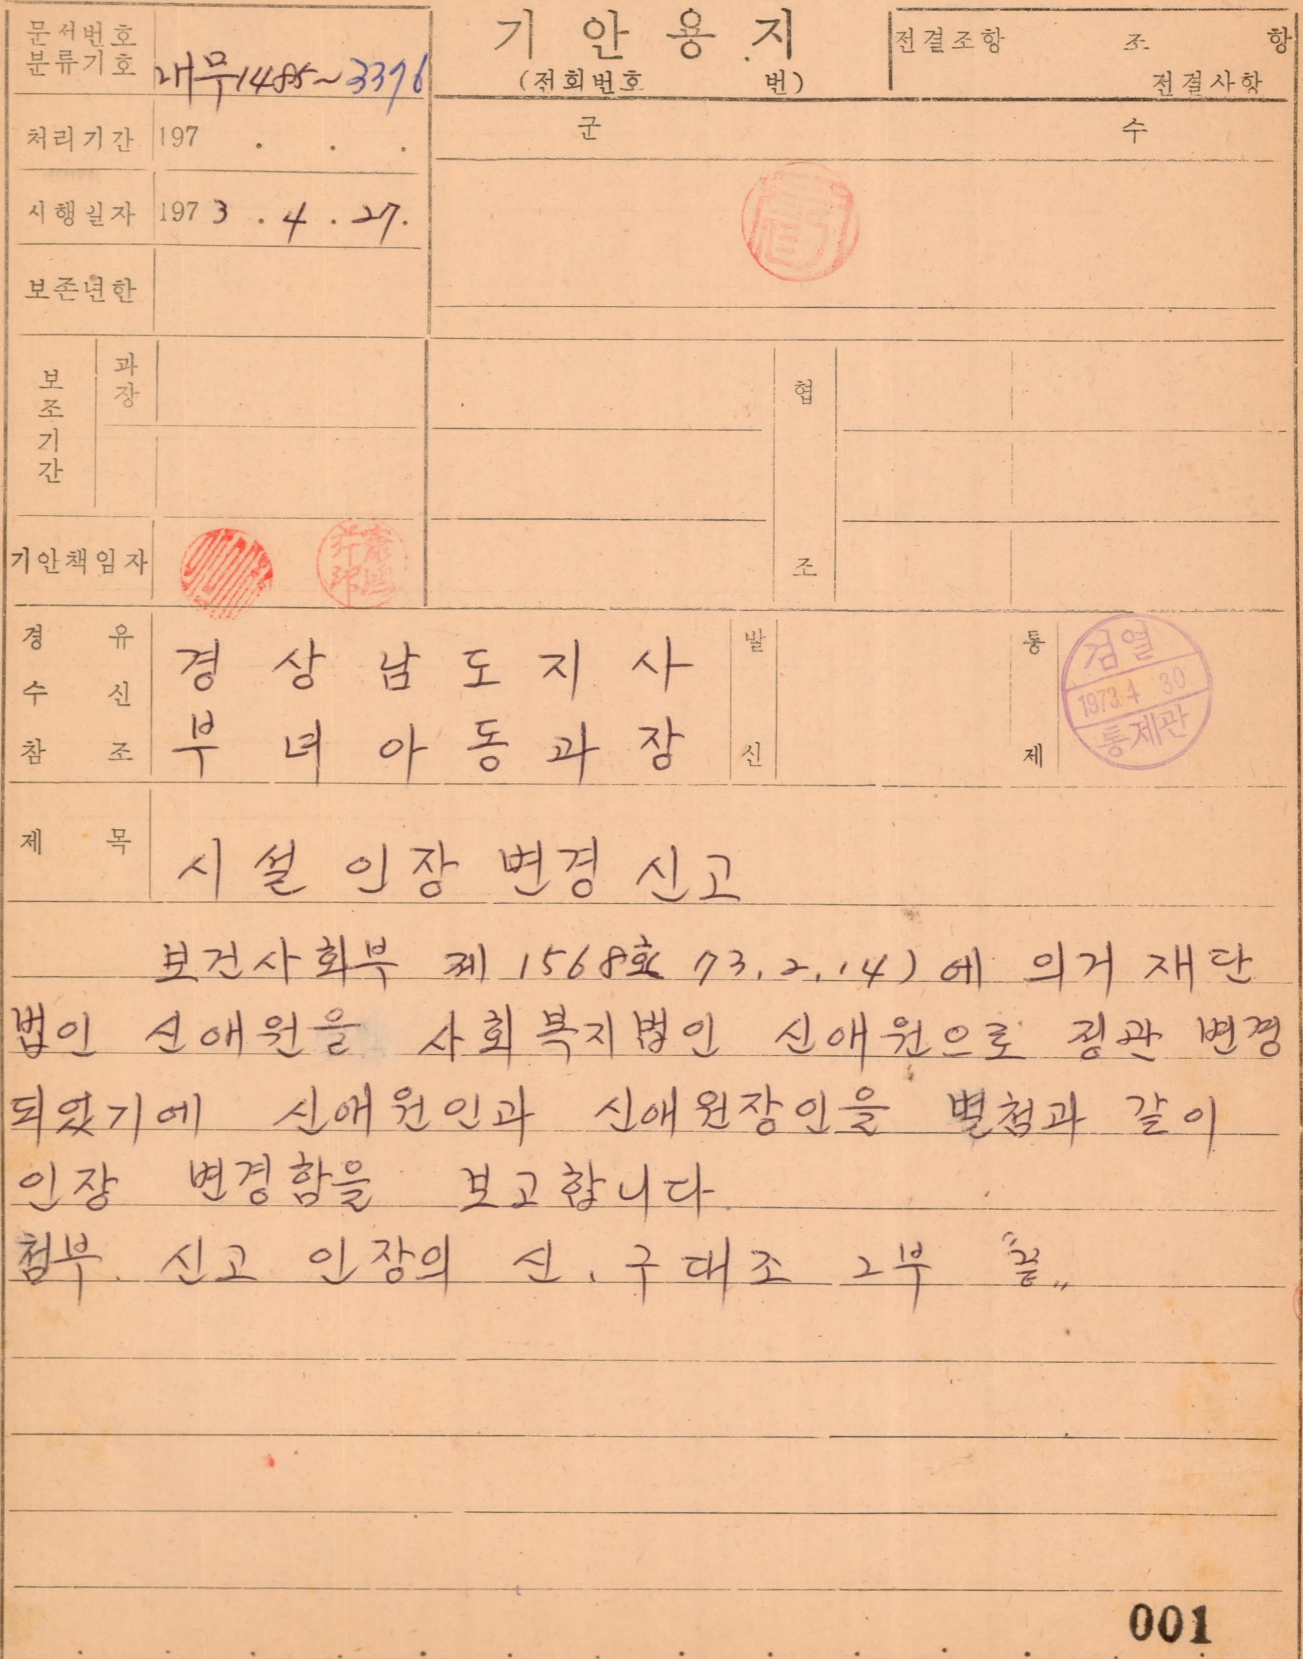 문서번호
분류기호
내무1485~3376
기안용지
(전회번호 번)
전결조항 조 항
전결사항
처리기간 197 . . .
군 수
시행일자 1973.4.27.
보존년한
보조기간
과장
협조
기안책임자
경유
수신
참조
경상남도지사
부녀아동과장
발신
통제
검열
1973.4 30
통제관
제목
시설 인장 변경 신고
보건사회부 제1568호 73.2.14)에 의거 재단
법인 신애원을 사회복지법인 신애원으로 정관 변경
되었기에 신애원인과 신애원장인을 별첨과 같이
인장 변경함을 보고합니다.
첨부. 신고 인장의 신.구대조 2부 "끝"
001